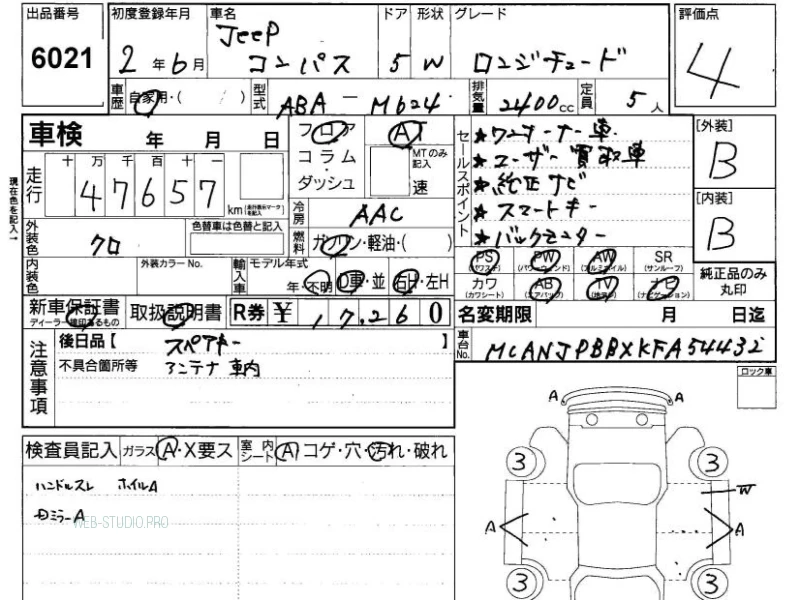 出品番号 初度登録年月 車名 ドア 形状 グレード 評価点
6021 2年6月 Jeep コンパス 5 W ロンジチュード 4
車歴 自家用・( ) 型式 ABA-M624 排気量 2400cc 定員 5人
車検 年 月 日 フロア AT セールスポイント ★ワンオーナー車 [外装]
コラム ★ユーザー買取車 B
走行 十万千百十一 ダッシュ MTのみ記入 速 ★純正ナビ
47657 km (走行距離マークを記入) ★スマートキー [内装]
現在色を記入→
外装色 クロ 色替車は色替と記入 冷房 AAC ★バックモニター B
燃料 ガソリン・軽油・( )
PS (パワステ) PW (パワーウィンド) AW (アルミホイル) SR (サンルーフ) 純正品のみ丸印
内装色 外装カラーNo. 輸入車 モデル年式 年・不明 D車・並 右H・左H カワ (カワシート) AB (エアバック) TV (地デジ) ナビ (ナビゲーション)
新車保証書 取扱説明書 R券 ¥ 17,260 名変期限 月 日迄
ディーラー捺印あるもの
注意事項 後日品【 スペアキー 】 車台No. MCANJPBBXKFA54432
不具合箇所等 アンテナ 車内
ロック車
検査員記入 ガラス A・X要ス 室内シート A コゲ・穴・汚れ・破れ
ハンドルスレ ホイルA
Dミラー A
WEB-STUDIO.PRO
A A
3 3
W
A A
3 3